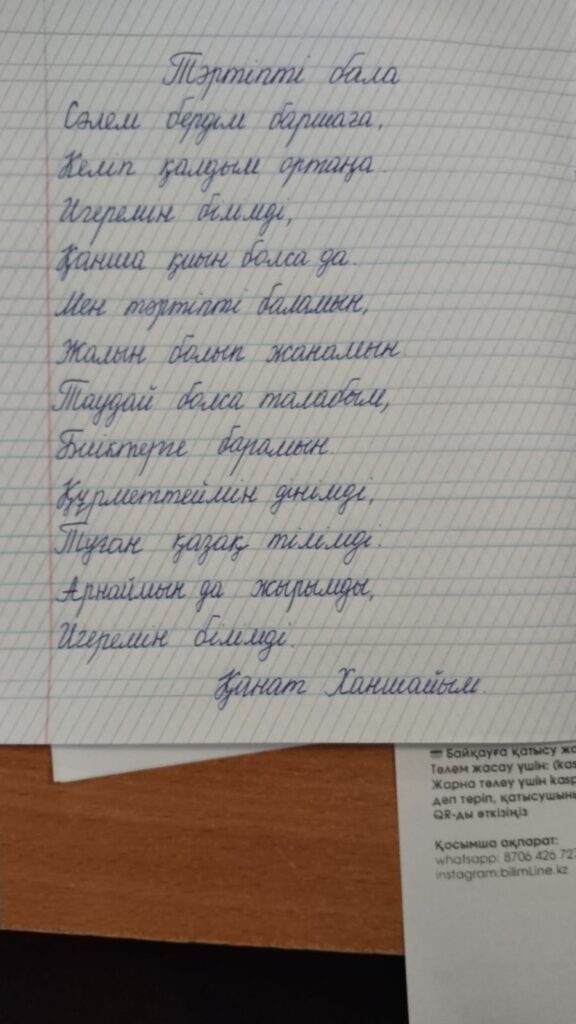 Тәртіпті бала
Сәлем бердім баршаға,
Келіп қалдым ортаңа.
Игеремін білімді,
Қанша қиын болса да.
Мен тәртіпті баламын,
Жалын болып жанамын.
Таудай болса талабым,
Биіктерге барамын.
Құрметтеймін дінімді,
Туған қазақ тілімді.
Арнаймын да жырымды,
Игеремін білімді.
Қанат Ханшайым.
Байқауға қатысу
Төлем жасау үшін:
Жарна төлеу үшін kasp
деп теріп, қатысушын
QR-ды өткізіңіз
Қосымша ақпарат:
whatsapp: 8706 426 727
instagram:bilimLine.kz